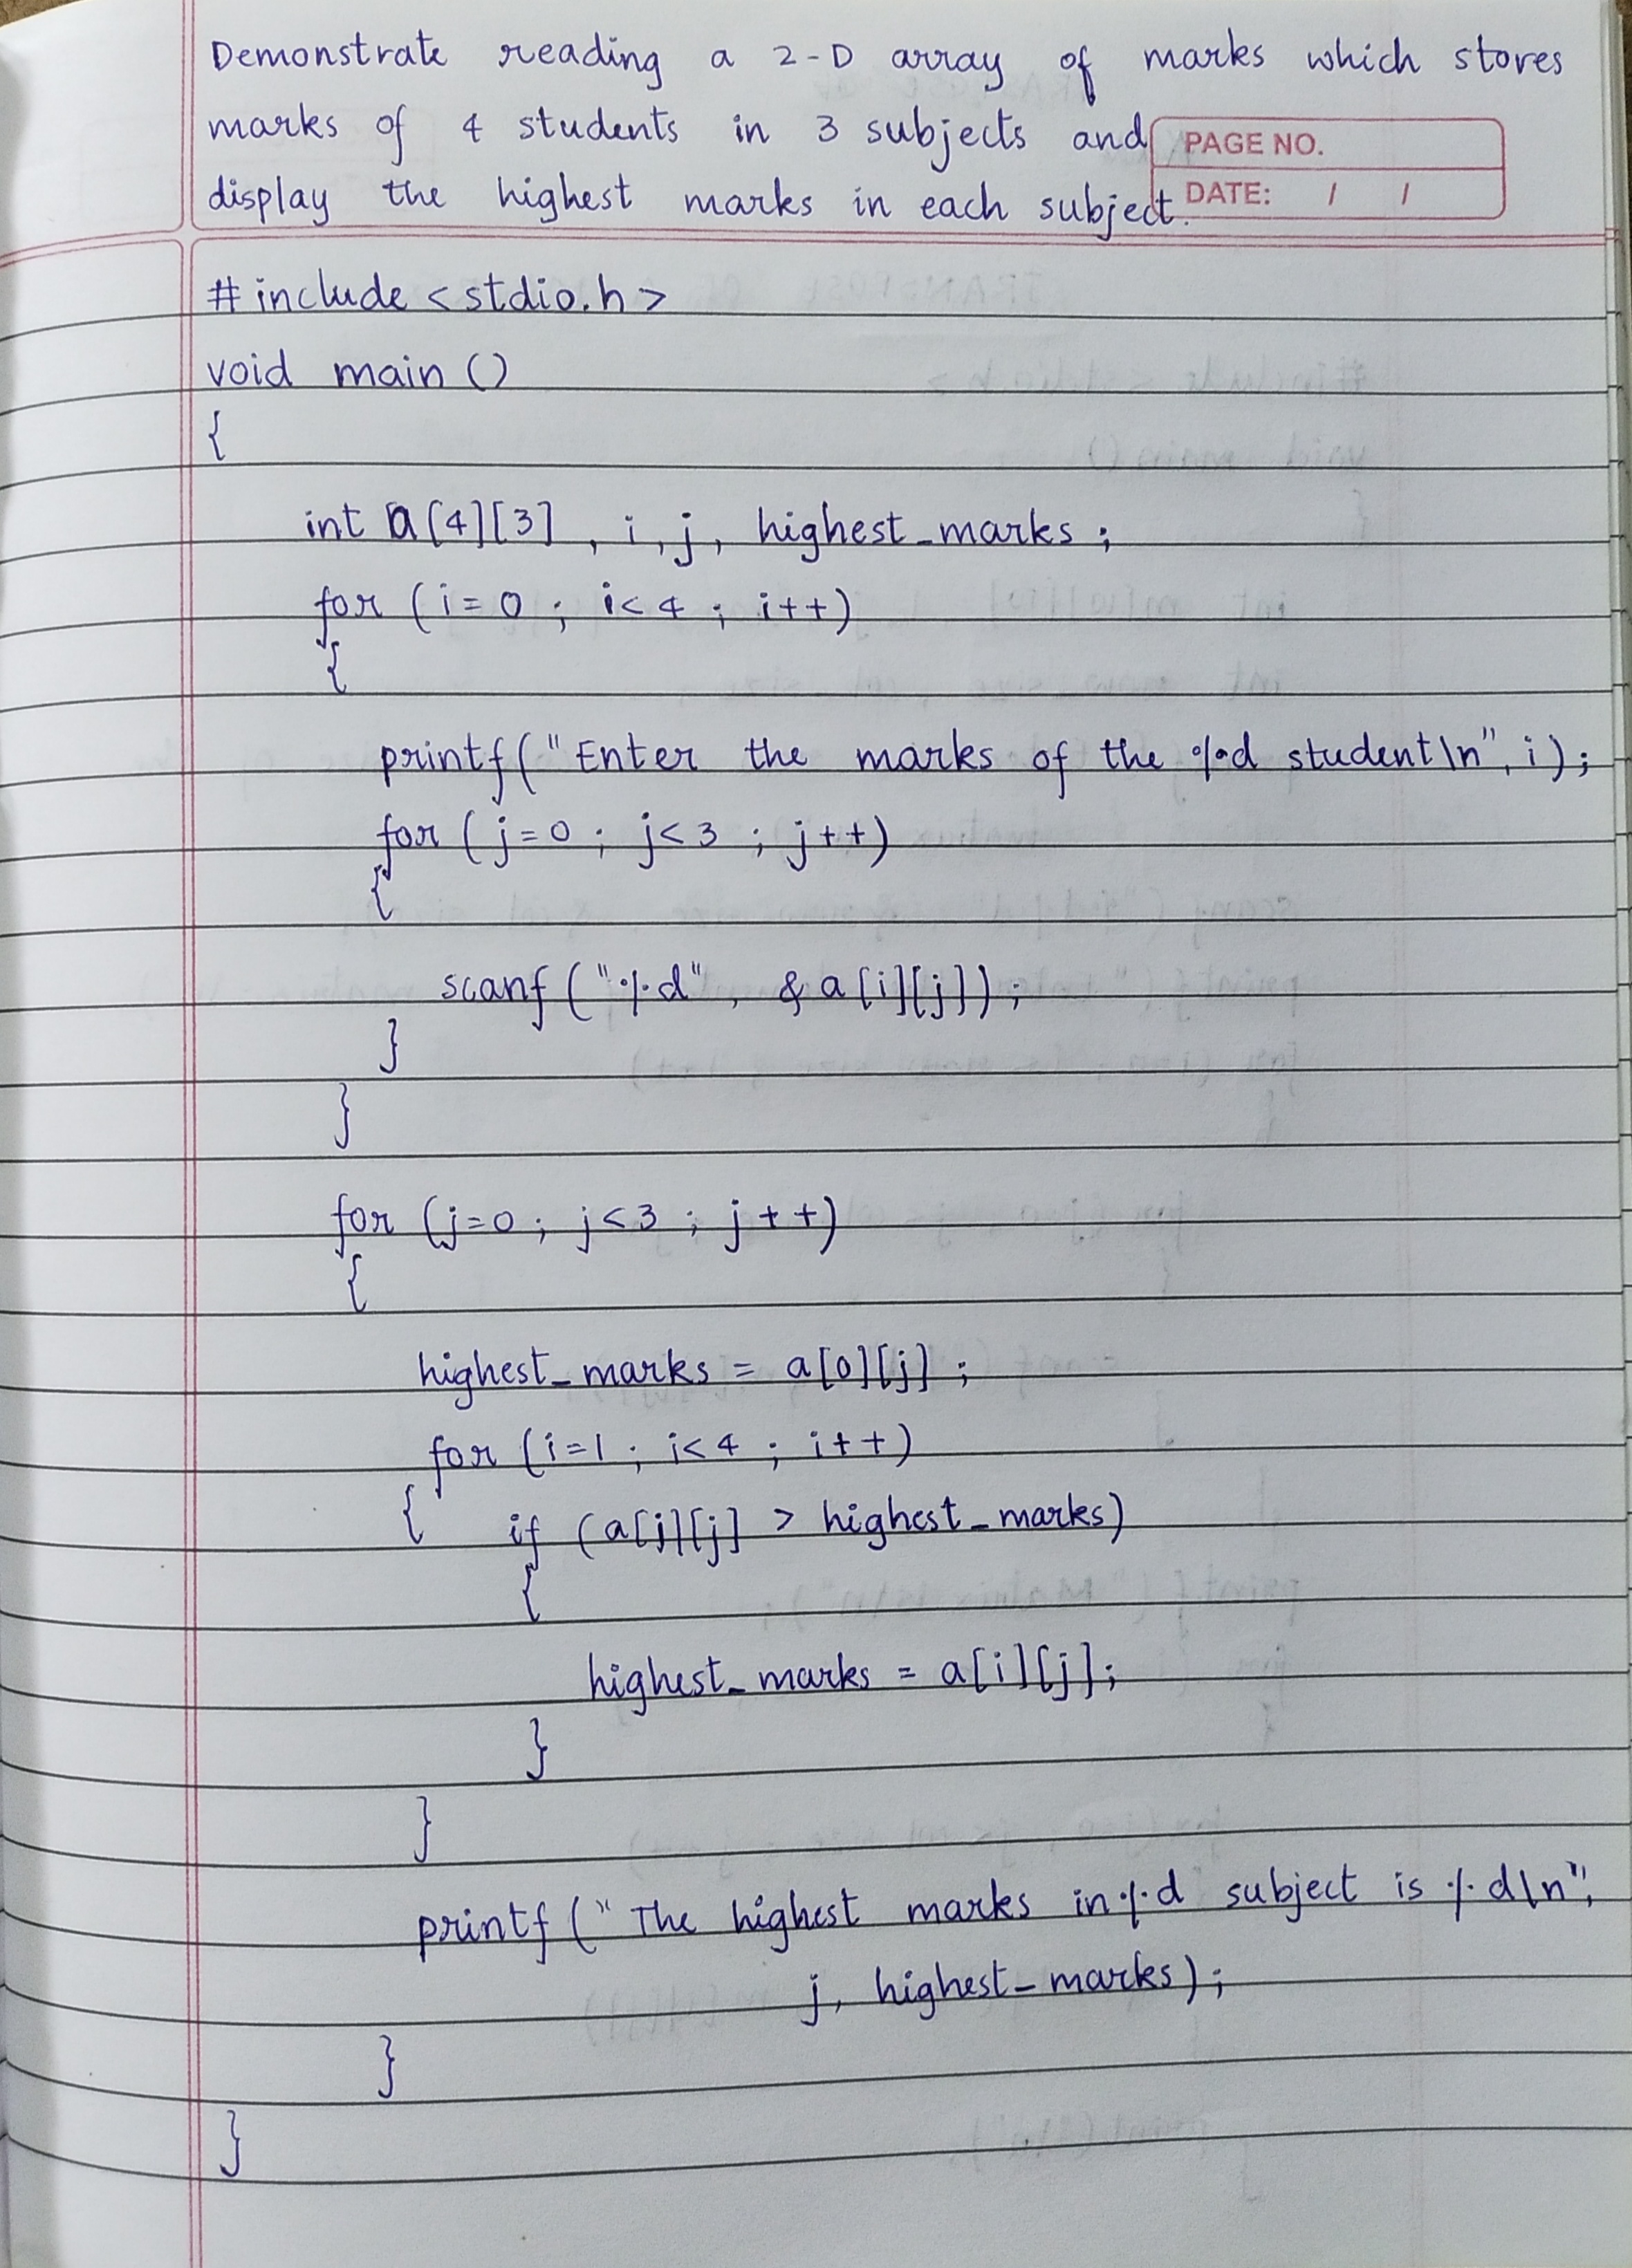 Demonstrate reading a 2-D array of marks which stores
marks of 4 students in 3 subjects and
PAGE NO.
display the highest marks in each subject.
DATE: / /
#include <stdio.h>
void main ()
{
int a[4][3] , i, j, highest_marks ;
for (i=0 ; i<4 ; i++)
{
printf("Enter the marks of the %d student\n", i);
for (j=0 ; j<3 ; j++)
{
scanf ("%d", &a[i][j]);
}
}
for (j=0 ; j<3 ; j++)
{
highest_marks = a[0][j] ;
for (i=1 ; i<4 ; i++)
{ if (a[j][j] > highest_marks)
{
highest_marks = a[i][j];
}
}
printf ("The highest marks in %d subject is %d\n",
j, highest_marks);
}
}